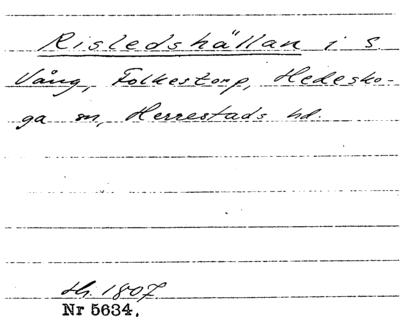 Risledshällan i S
Vång, Folkestorp, Hedesko-
ga sn, Herrestads hd.
Hr. 1807
Nr 5634,